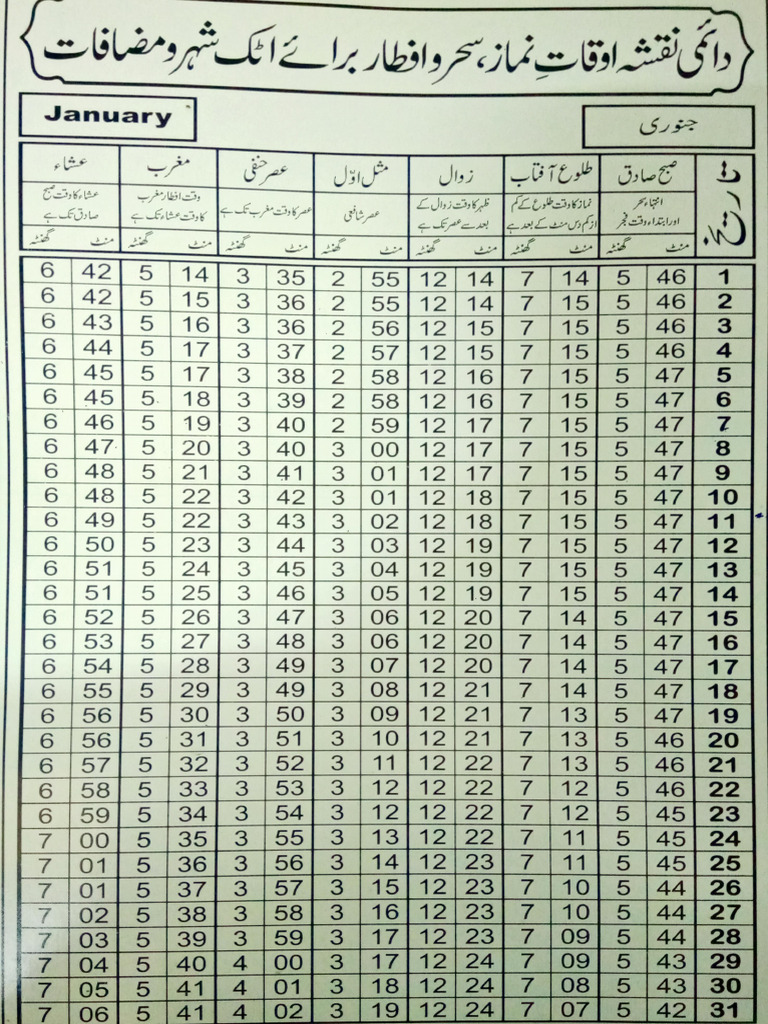 دائمی نقشہ اوقاتِ نماز، سحر و افطار برائے اٹک شہر و مضافات
January جنوری
تاریخ صبح صادق طلوع آفتاب زوال مثل اوّل عصر حنفی مغرب عشاء
انتہاء سحر نماز کا وقت طلوع کے کم ظہر کا وقت زوال کے عصر شافعی عصر کا وقت مغرب تک ہے وقت افطار مغرب عشاء کا وقت صبح
اور ابتداء وقت فجر از کم دس منٹ کے بعد ہے بعد سے عصر تک ہے کا وقت عشاء تک ہے صادق تک ہے
منٹ گھنٹہ منٹ گھنٹہ منٹ گھنٹہ منٹ گھنٹہ منٹ گھنٹہ منٹ گھنٹہ منٹ گھنٹہ
6 42 5 14 3 35 2 55 12 14 7 14 5 46 1
6 42 5 15 3 36 2 55 12 14 7 15 5 46 2
6 43 5 16 3 36 2 56 12 15 7 15 5 46 3
6 44 5 17 3 37 2 57 12 15 7 15 5 46 4
6 45 5 17 3 38 2 58 12 16 7 15 5 47 5
6 45 5 18 3 39 2 58 12 16 7 15 5 47 6
6 46 5 19 3 40 2 59 12 17 7 15 5 47 7
6 47 5 20 3 40 3 00 12 17 7 15 5 47 8
6 48 5 21 3 41 3 01 12 17 7 15 5 47 9
6 48 5 22 3 42 3 01 12 18 7 15 5 47 10
6 49 5 22 3 43 3 02 12 18 7 15 5 47 11
6 50 5 23 3 44 3 03 12 19 7 15 5 47 12
6 51 5 24 3 45 3 04 12 19 7 15 5 47 13
6 51 5 25 3 46 3 05 12 19 7 15 5 47 14
6 52 5 26 3 47 3 06 12 20 7 14 5 47 15
6 53 5 27 3 48 3 06 12 20 7 14 5 47 16
6 54 5 28 3 49 3 07 12 20 7 14 5 47 17
6 55 5 29 3 49 3 08 12 21 7 14 5 47 18
6 56 5 30 3 50 3 09 12 21 7 13 5 47 19
6 56 5 31 3 51 3 10 12 21 7 13 5 46 20
6 57 5 32 3 52 3 11 12 22 7 13 5 46 21
6 58 5 33 3 53 3 12 12 22 7 12 5 46 22
6 59 5 34 3 54 3 12 12 22 7 12 5 45 23
7 00 5 35 3 55 3 13 12 22 7 11 5 45 24
7 01 5 36 3 56 3 14 12 23 7 11 5 45 25
7 01 5 37 3 57 3 15 12 23 7 10 5 44 26
7 02 5 38 3 58 3 16 12 23 7 10 5 44 27
7 03 5 39 3 59 3 17 12 23 7 09 5 44 28
7 04 5 40 4 00 3 17 12 24 7 09 5 43 29
7 05 5 41 4 01 3 18 12 24 7 08 5 43 30
7 06 5 41 4 02 3 19 12 24 7 07 5 42 31